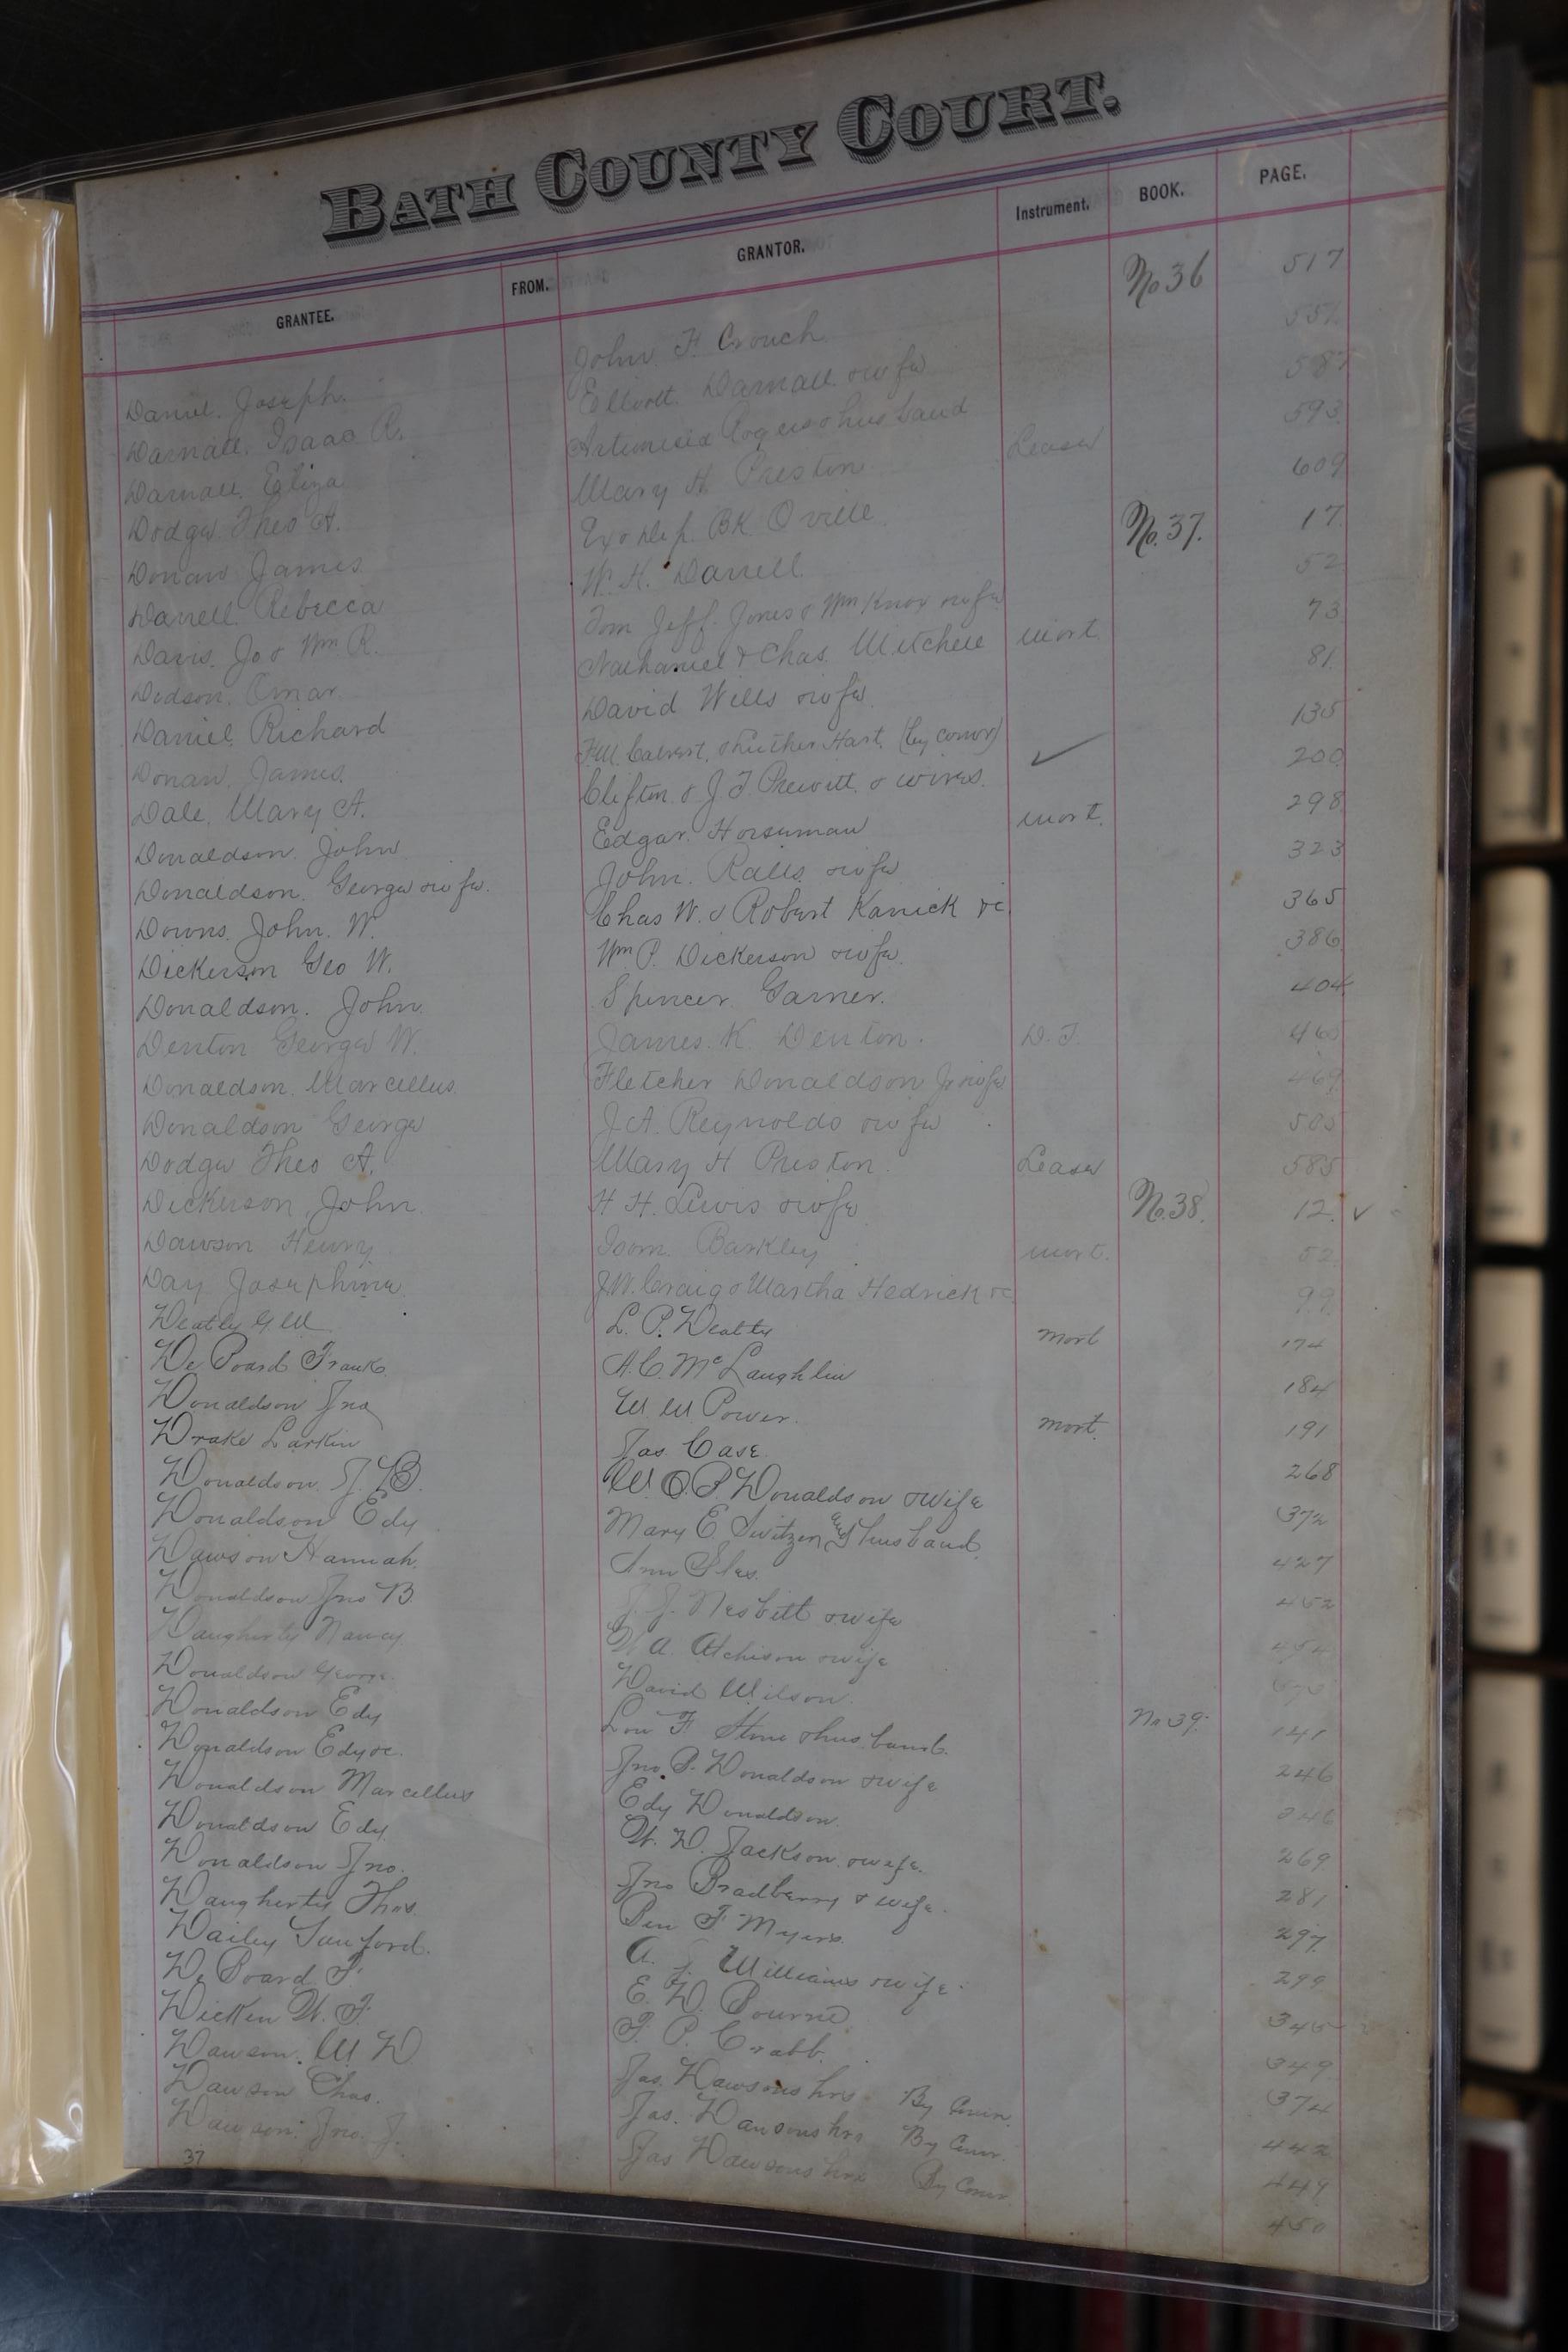 BATH COUNTY COURT.
GRANTEE. FROM. GRANTOR. Instrument. BOOK. PAGE.
Daniel. Joseph. John F. Crouch No 36 517
Darnall. Isaac R. Elliott. Darnall & wife 557.
Darnall. Eliza Rogers & husband 587
Dodge Theo A. Mary H. Preston Lease 593.
Donaw James 609
Darrell. Rebecca W. H. Darrell No. 37. 17
Davis. Jo & Wm R. Tom Jeff. Jones & Wm Knox & wife 52
Dodson. Omar Nathaniel & Chas. Mitchell mort. 73
Daniel. Richard David Wills & wife 81
Donaw. James. F.M. Calvert. & Luther Hart. (by comr) 135
Dale. Mary A. Clifton & J. T. Prewitt. & wives. ✓ 200
Donaldson. John Edgar. Horseman mort. 298
Donaldson. George & wife. John. Ralls & wife 323
Downs. John. W. Chas W. & Robert Karrick &c. 365
Dickerson Geo W. Wm P. Dickerson & wife. 386
Donaldson. John. Spencer Garner. 404
Denton George W. James. K. Denton. D.T.
Donaldson. Marcellus Fletcher Donaldson Jr & wife 469
Donaldson George J.A. Reynolds & wife 505
Dodge Theo A. Mary H Preston. Lease 585
Dickerson. John. H H. Lewis & wife No. 38. 12. ✓
Dawson Henry Isom. Barkley mort. 52
Day Josephine J.W. Craig & Martha Hedrick &c. 99
Deatly G. W L. P. Deatly mort 174
De Board Frank A. C. McLaughlin 184
Donaldson Jno W. W Power. mort. 191
Drake Larkin Jas. Case 268
Donaldson. J. B. W. O. P. Donaldson & wife 372
Donaldson Edy Mary E Switzer husband 427
Dawson Hannah. Ann Iles. 452
Donaldson Jno B J. J. Nesbitt & wife 454
Daugherty Nancy A. Atchison & wife
Donaldson George. David Wilson. No 39. 141
Donaldson Edy Lou F Stone & husband. 246
Donaldson Edy &c. Jno. P. Donaldson & wife 246
Donaldson Marcellus Edy Donaldson 269
Donaldson Edy W. D. Jackson & wife. 281
Donaldson Jno. Jno Bradberry & wife. 297
Daugherty Thos. Ben F Myers. 299
Dailey Sanford. A. J. Williams & wife. 345
De Board F. E. D. Bourne 349
Dicken W. F. F. P. Crabb. 374
Dawson. W D Jas. Dawsons hrs By Comr. 442
Dawson Chas. Jas. Dawsons hrs By Comr. 449
Dawson. Jno. J. Jas Dawsons hrs By Comr 450
37